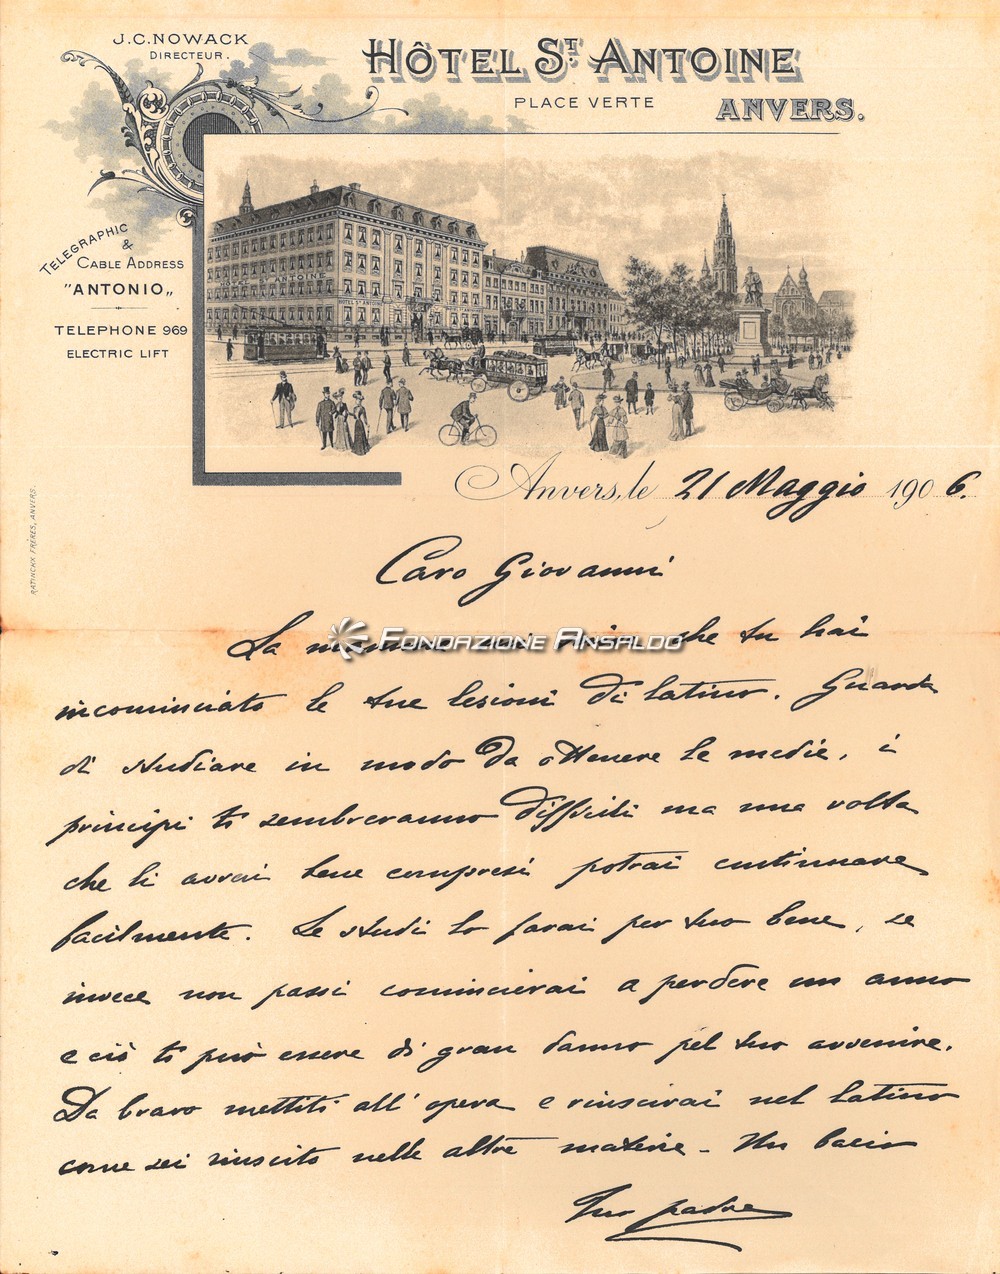 J.C. NOWACK
DIRECTEUR.
HÔTEL ST. ANTOINE
PLACE VERTE
ANVERS.
TELEGRAPHIC
&
CABLE ADDRESS
"ANTONIO"
TELEPHONE 969
ELECTRIC LIFT
ANTOINE
RATINCKX FRÈRES, ANVERS.
Anvers, le 21 Maggio 1906.
Caro Giovanni
FONDAZIONE ANSALDO
La mamma mi che tu hai
incominciato le tue lesioni di latino. Guarda
di studiare in modo da ottenere le medie, i
principi ti sembreranno difficili ma una volta
che li avrai bene compresi potrai continuare
facilmente. Se studi lo farai per tuo bene, se
invece non passi comincierai a perdere un anno
e ciò ti può essere di gran danno pel tuo avvenire.
Da bravo mettiti all'opera e riuscirai nel latino
come sei riuscito nelle altre materie - Un bacio
Tuo padre